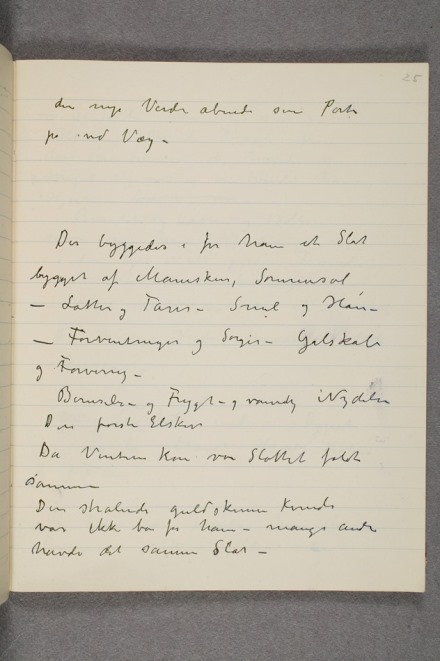 25
den nye Verde abnede sin Port
på vid Væg –
Der byggedes i for ham et Slot
bygget af Maneskin, Sommersol
– Latter og Tarer – Smil og Hån –
– Forventninger og Sorger – Galskab
og Forvirring –
og Frygt – og Nydelse
Den første Elsker
Da Vinteren kom var Slottet faldt
sammen
Den stralende guldskinn Kvinde
var ikke bare for ham – mange andre
havde det samme Slot –